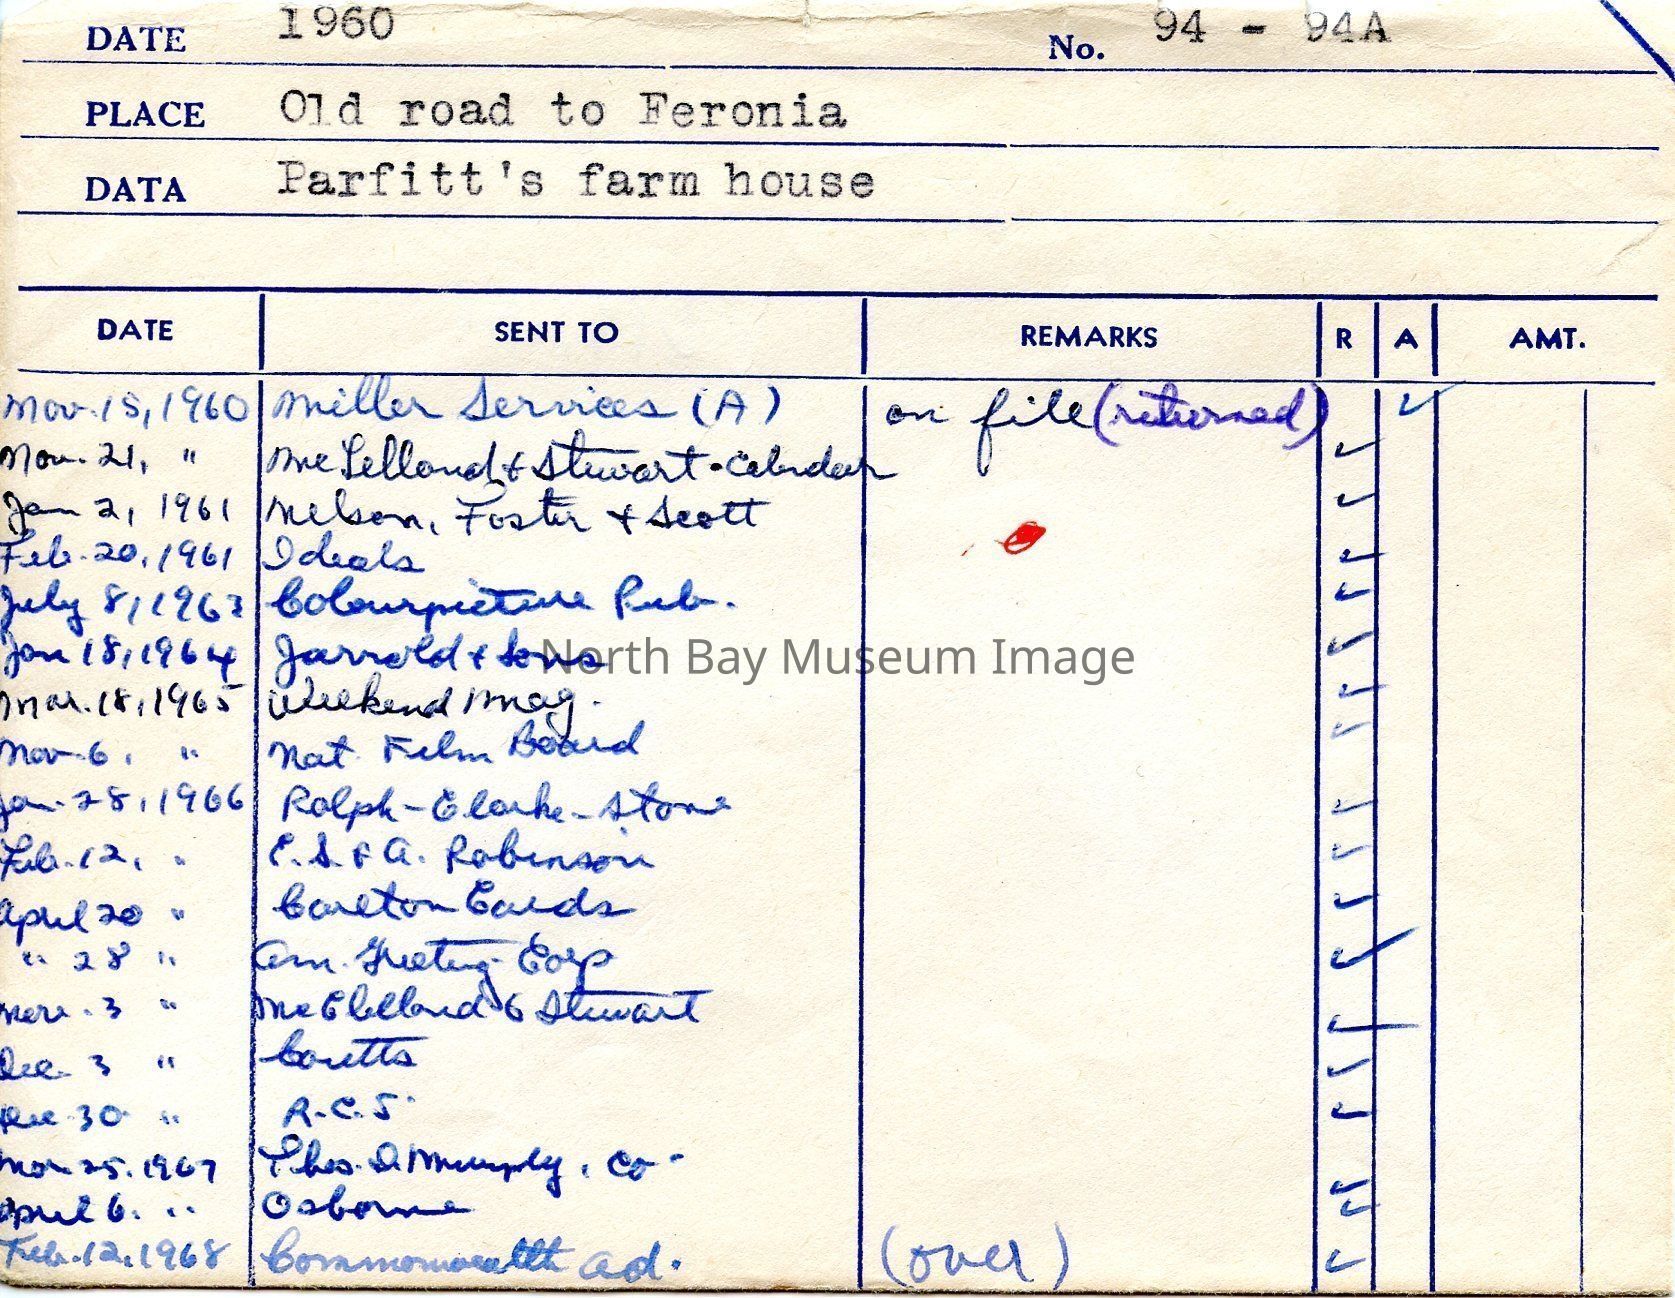 DATE 1960 No. 94 - 94A
PLACE Old road to Feronia
DATA Parfitt's farm house
DATE SENT TO REMARKS R A AMT.
Nov. 15, 1960 Miller Services (A) on file (returned) ✓
Nov. 21, " McLelland & Stewart - Calendar ✓
Jan 2, 1961 Nelson, Foster & Scott ✓
Feb. 20, 1961 Ideals ✓
July 8, 1963 Colourpicture Pub. ✓
Jan 18, 1964 Jarrold & Sons ✓
North Bay Museum Image
Mar. 18, 1965 Weekend Mag. ✓
Nov 6, " Nat Film Board ✓
Jan. 28, 1966 Ralph-Clarke-Stone ✓
Feb. 12, " E.S. & A. Robinson ✓
April 20 " Carlton Cards ✓
" 28 " Am. Greeting Corp ✓
3 " McClelland & Stewart ✓
Dec. 3 " Coutts ✓
Dec. 30 " R.C.S. ✓
Mar 25, 1967 Thos. D. Murphy, Co. ✓
April 6, " Osborne ✓
Feb. 12, 1968 Commonwealth Ad. (over) ✓